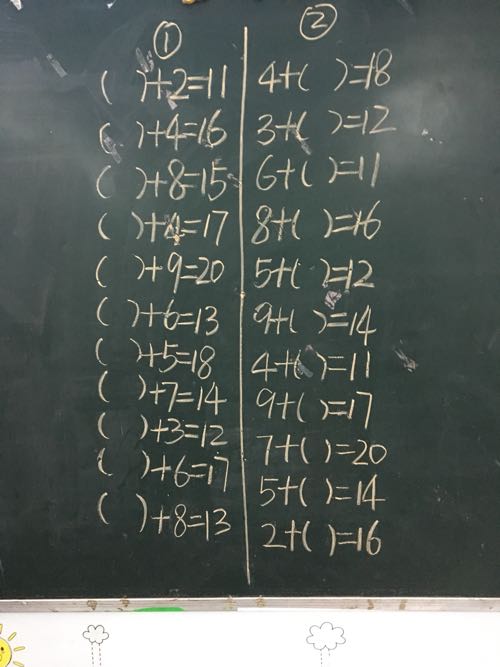 ①
( )+2=11
( )+4=16
( )+8=15
( )+4=17
( )+9=20
( )+6=13
( )+5=18
( )+7=14
( )+3=12
( )+6=17
( )+8=13
②
4+( )=18
3+( )=12
6+( )=11
8+( )=16
5+( )=12
9+( )=14
4+( )=11
9+( )=17
7+( )=20
5+( )=14
2+( )=16